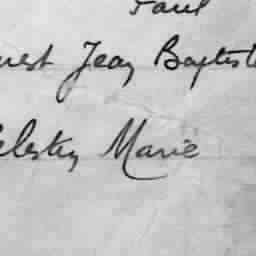 Paul
nest Jean Baptiste
elestin Marie